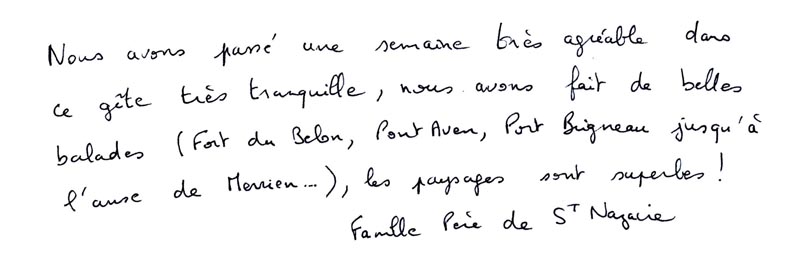 Nous avons passé une semaine très agréable dans
ce gîte très tranquille, nous avons fait de belles
balades (Fort du Belon, Pont Aven, Port Brigneau jusqu'à
l'anse de Merrien...), les paysages sont superbes !
Famille Père de St Nazaire